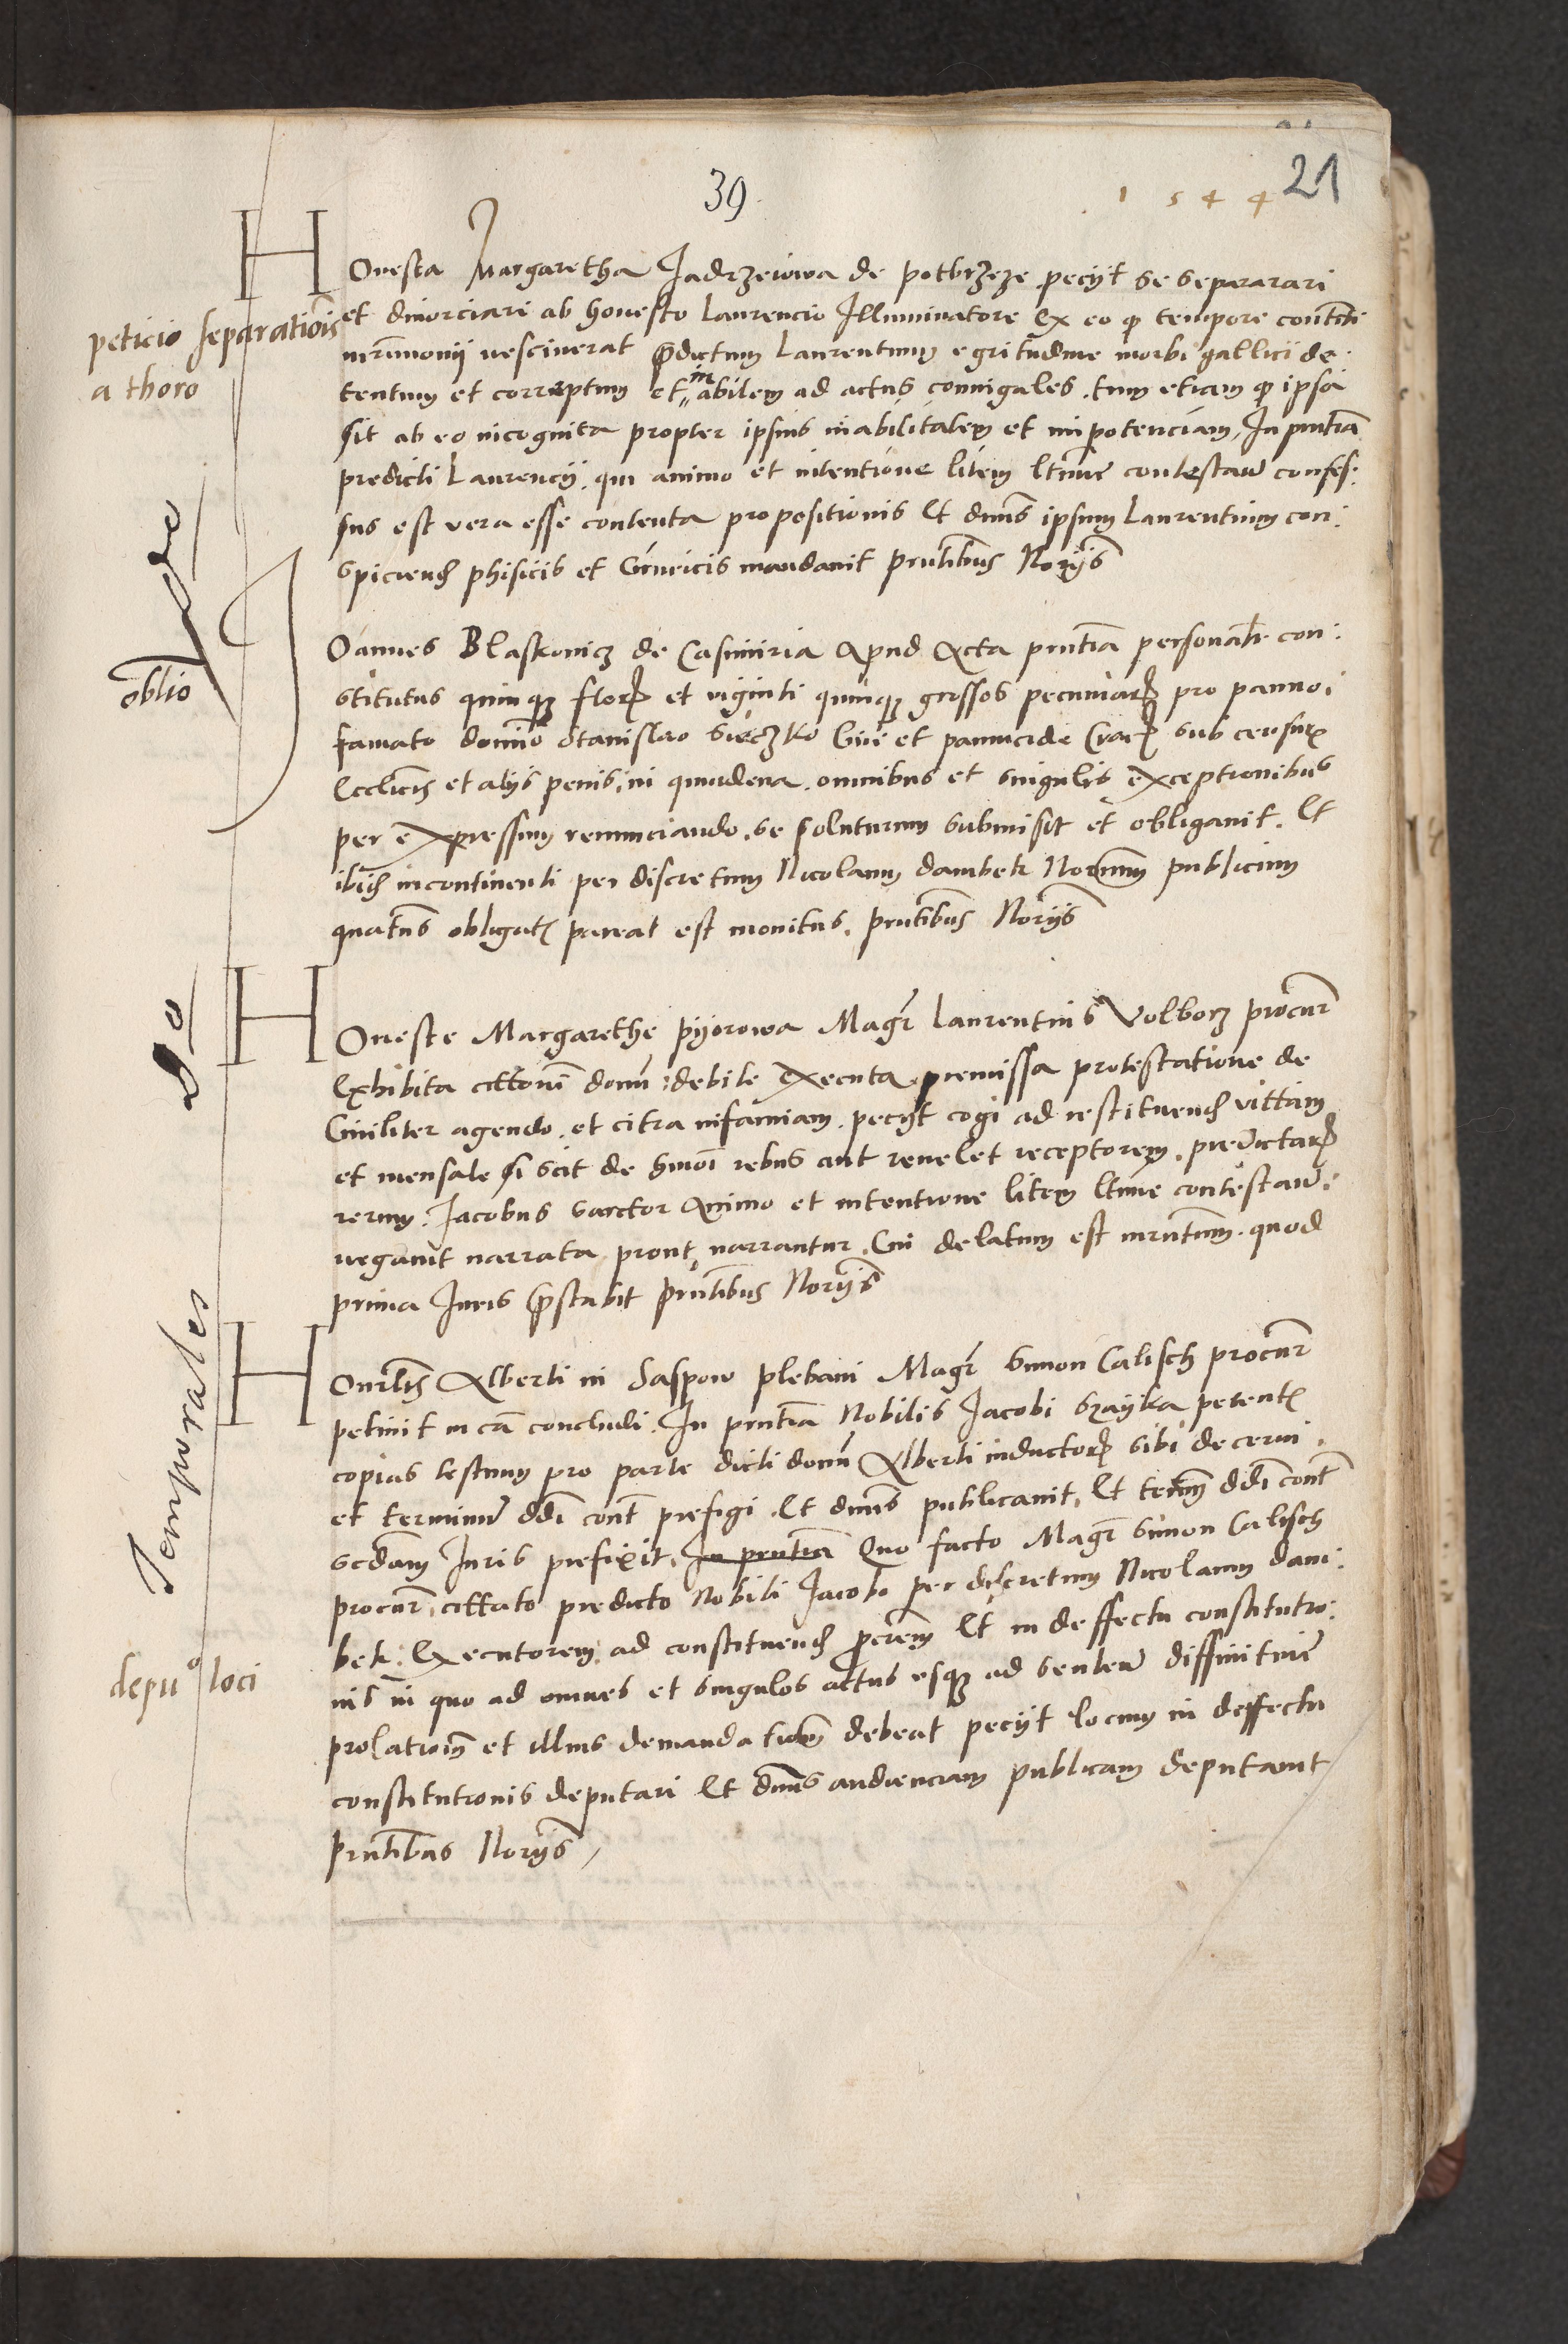 39
1544 21
Honesta Margaretha Jadrzeiowa de potbrzeze peciit se separarari
peticio separationis
a thoro
et diuorciari ab honesto Laurencio Illuminatore Ex eo quod tempore contracti
mrimonii nesciuerat predictum Laurentium egritudine morbi gallici de:
tentum et correptum et inabilem ad actus coniugales. tum etiam quod ipsa
sit ab eo incognita propter ipsius inabilitatem et impotenciam, In pntia
predicti Laurencii. qui animo et intentione litem ltime contestan confes:
sus est vera esse contenta propositionis Et dnus ipsum Laurentium con:
spiciend phisicis et Ciruricis mandauit pntibus Noriis
oblio
Joannes Blaskouicz de Casimiria Apud Acta pntia personalr con:
stitutus quinque flor et viginti quinque grossos pecuniar pro panno
famato domino Stanislao Sieczko Ciui et pannicide Crac sub censuris
Ecclicis et aliis penis, in quindena. omnibus et singulis exceptionibus
per expressum renunciando, se soluturum submisit et obligauit. Et
ibid incontinenti per discretum Nicolaum dambek Notarium publicum
quatenus obligat pareat est monitus. pntibus Noriis
Honeste Margarethe pyorowa Magr Laurentius Volborz procur
Exhibita cittoni domi debite Executa, premissa protestatione de
Ciuiliter agendo. et citra infamiam. peciit cogi ad restituend vittam
et mensale si scit de hmoi rebus aut reuelet receptorem. predictar
rerum. Jacobus sarctor Animo et intentione litem ltime contestan.
negauit narrata prout narrantur. Cui delatum est iurmtum. quod
prima Juris prestabit pntibus Noriis
Temporales
Honrlis Alberti in Saspow plebani Magr Simon Calisch procur
petiuit in ca concludi. In pntia Nobilis Jacobi Szayka petent
copias testium pro parte dicti domi Alberti inductor sibi decerni.
et terminum ddi cont prefigi. Et dnus publicauit. Et termm ddi cont
scdam Juris prefixit. In pntia Quo facto Magr Simon Calisch
procur, cittato predicto Nobili Jacobo per discretum Nicolaum dam:
bek. Executorem ad constituend procrem Et in deffectu constitutio:
depuo loci
nis in quo ad omnes et singulos actus usque ad senten diffinitiue
prolationem et illius demandationem debeat peciit locum in deffectu
constitutionis deputari Et dnus audienciam publicam deputauit
pntibus Noriis